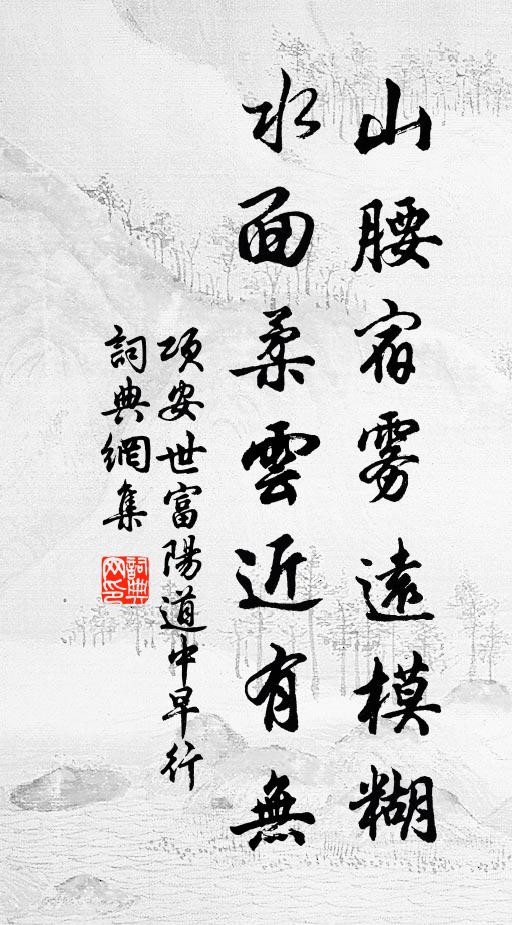 山腰宿雾遠模糊
水面柔雲近有無
項安世富陽道中早行
詞典網集
詞典网印